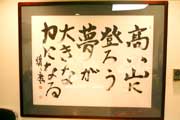 高い山に
登ろう
夢が
大きな
力になる